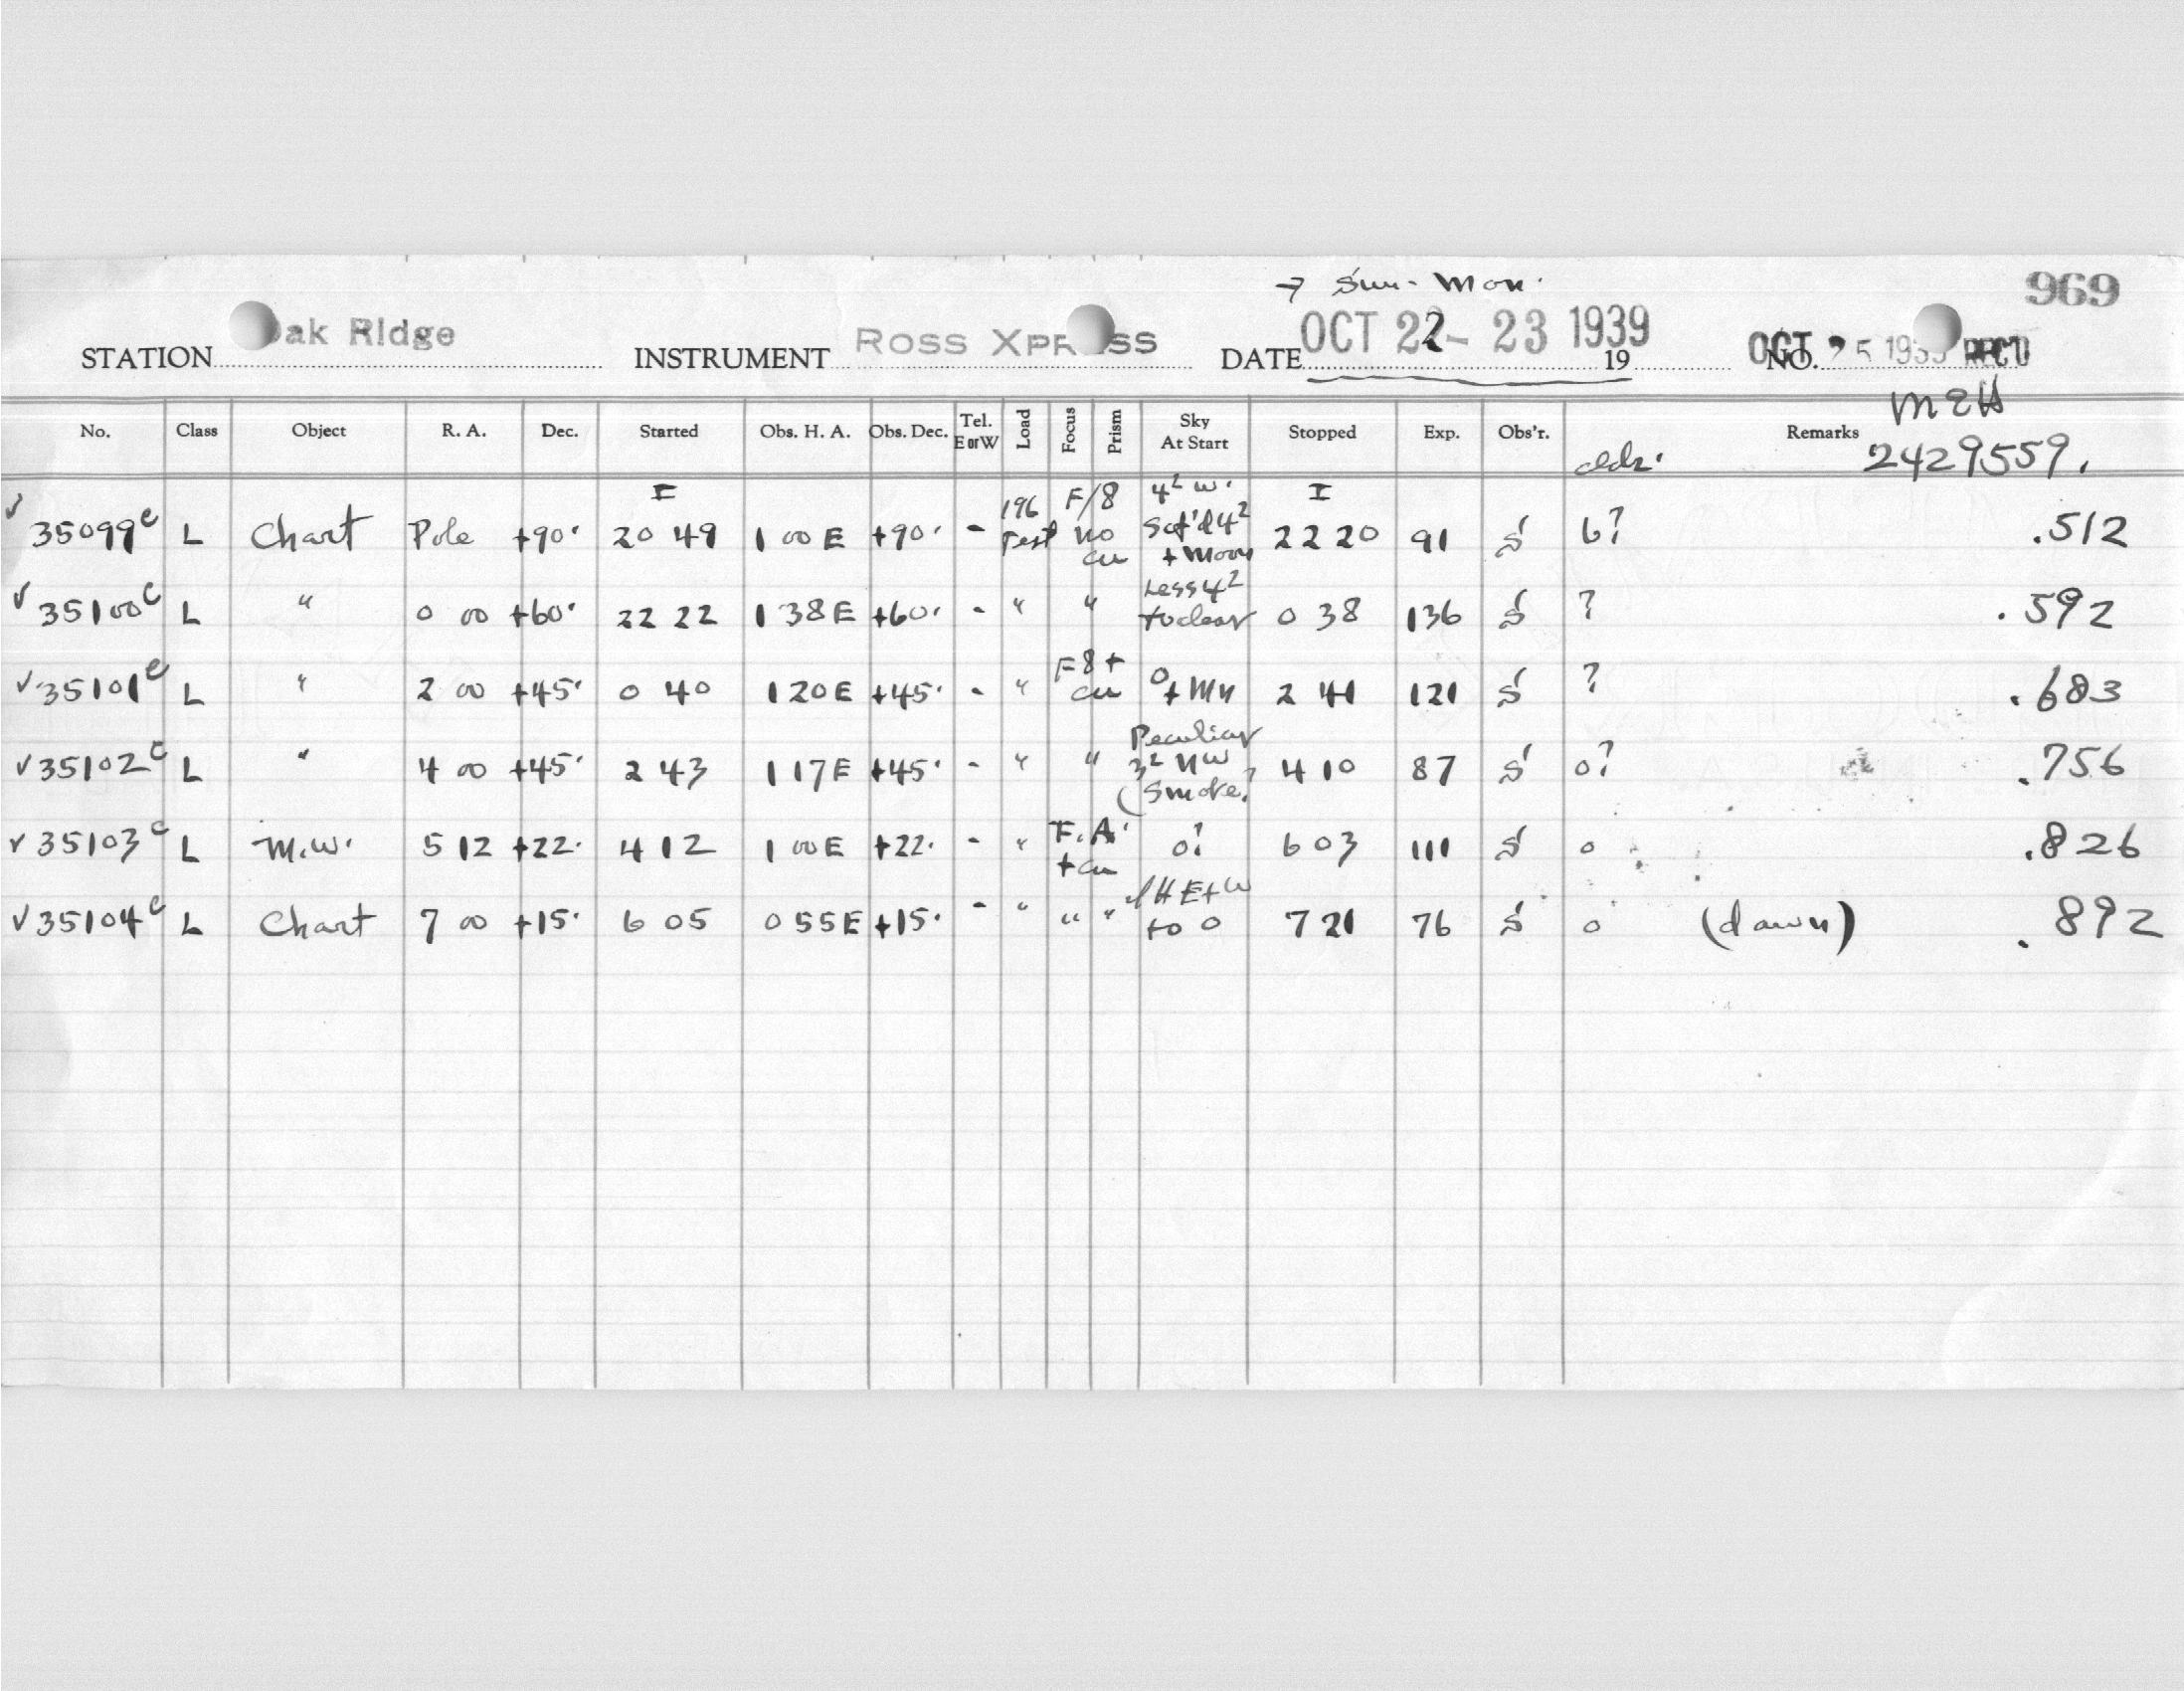 → Sun - Mon. 969
STATION Oak RIdge INSTRUMENT ROSS XPRESS DATE OCT 22 - 23 1939 19 NO. OCT 25 1939 REC'D
MEH
No. Class Object R. A. Dec. Started Obs. H. A. Obs. Dec. Tel. E or W Load Focus Prism Sky At Start Stopped Exp. Obs'r. Remarks
2429559.
35099c L Chart Pole +90° I 20 49 1 00 E +90° - 196 Test F/8 no cu 4² w. Sct'd 4² + Moon I 22 20 91 S 6? .512
35100c L " 0 00 +60° 22 22 1 38 E +60° - " " Less 4² to clear 0 38 136 S ? .592
35101c L " 2 00 +45° 0 40 1 20 E +45° - " F 8 + cu 0 + Mn 2 41 121 S ? .683
35102c L " 4 00 +45° 2 43 1 17 E +45° - " " Peculiar 3² NW (Smoke? 4 10 87 S 0? .756
35103c L M.W. 5 12 +22° 4 12 1 00 E +22° - " F. A. + cu 0? 6 03 111 S 0 .826
35104c L Chart 7 00 +15° 6 05 0 55 E +15° - " " " E + W to 0 7 21 76 S 0 (dawn) .892